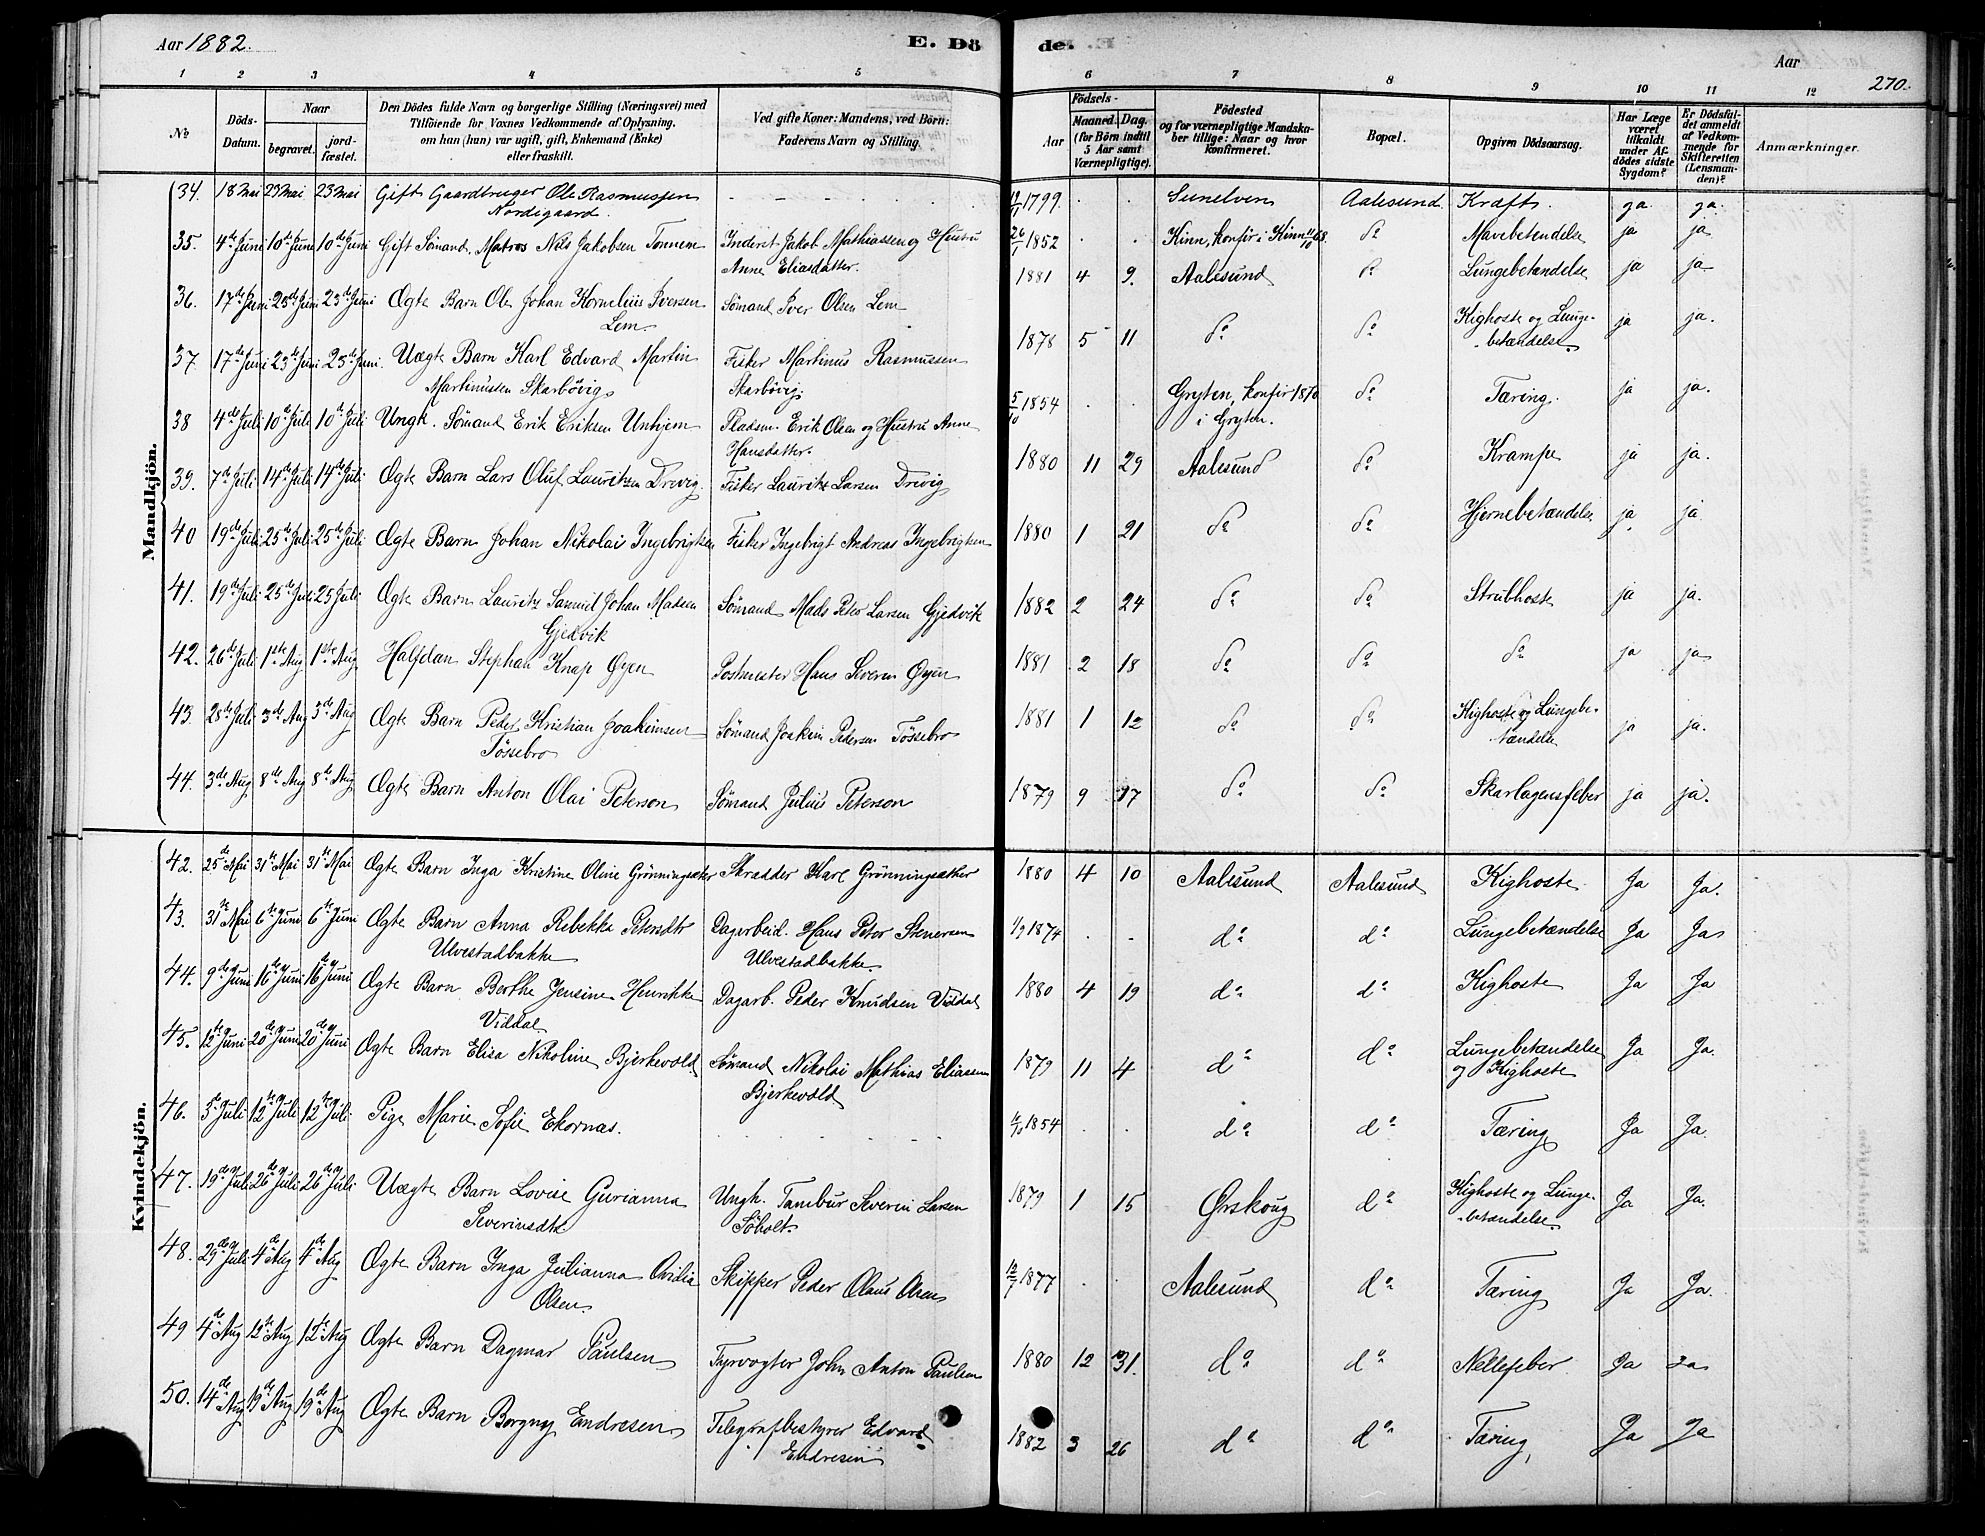 Aar 1882. E. Dö de. Aar 270.
1 2 3 4 5 6 7 8 9 10 11 12
No Döds-Datum. Naar begravet. jord-fæstet. Den Dödes fulde Navn og borgerlige Stilling (Næringsvei) med Tilföiende for Voxnes Vedkommende af Oplysning, om han (hun) var ugift, gift, Enkemand (Enke) eller fraskilt. Ved gifte Koner: Mandens, ved Börn: Faderens Navn og Stilling. Födsels- Aar Maaned. Dag. (for Börn indtil 5 Aar samt Værnepligtige). Födested og for værnepligtige Mandskaber tillige: Naar og hvor konfirmeret. Bopæl. Opgiven Dödsaarsag. Har Læge været tilkaldt under Afdödes sidste Sygdom? Er Dödsfaldet anmeldt af Vedkommende for Skifteretten (Lensmanden)? Anmærkninger.
Mandkjön.
34. 18 Mai 23 Mai 23 Mai Gift Gaardbruger Ole Rasmussen 1799 Sunelven Aalesund Kræft. ja ja.
Nordigaard.
35. 4de Juni 10de Juni 10de Juni Gift Sömand. Matros Nils Jakobsen Tonnem Inderst Jakob Mathiassen og Hustru 26/1 1852 Kinn, konfir i Kinn do Mavebetændelse ja ja
Anne Eliasdatter.
36. 17de Juni 23de Juni 23de Juni Ægte Barn Ole Johan Kornelius Iversen Sömand Iver Olsen Lem 1881 4 9. Aalesund do Lungebetændelse ja ja
Lem
37. 17de Juni 23de Juni 23de Juni. Uægte Barn Karl Edvard Martin Fisker Martinus Rasmussen 1878 5 11 do do Kighoste og Lunge- ja ja.
Martinussen Skarbövig Skarbövig. betændelse
38 4de Juli 10de Juli 10de Juli Ungk. Sömand Erik Eriksen Unhjem Pladsm. Erik Olsen og Hustru Anne 5/10 1854 Gryten, konfir 1870 do Tæring. ja ja.
Hansdatter. i Gryten.
39. 7de Juli 14de Juli 14de Juli Ægte Barn Lars Oluf Lauritzen Drevig. Fisker Lauritz Larsen Drevig 1880 11 29 Aalesund do Krampe ja ja.
40 19de Juli 25de Juli 25de Juli Ægte Barn Johan Nikolai Ingebrigtsen Fisker Ingebrigt Andreas Ingebrigtsen 1880 1 21 do do Hjernebetændelse ja ja
41. 19de Juli 25de Juli 25 Juli Ægte Barn Lauritz Samuel Johan Madsen Sömand Mads Peter Larsen Gjedvik 1882 2 24 do do Strubhoste ja ja.
Gjedvik
42. 26de Juli 1ste Aug 1ste Aug Halfdan Stephan Knap Øyen Postmester Hans Severin Øyen 1881 2 18 do do do ja ja
43. 28de Juli 3de Aug 3de Aug Ægte Barn Peder Kristian Joakimsen Sömand Joakim Pedersen Tössebro 1881 1 12 do do Kighoste og Lungebe- ja ja.
Tössebro tændelse
44. 3de Aug 8de Aug 8de Aug Ægte Barn Anton Olai Peterson Sömand Julius Peterson 1879 9 17 do do Skarlagensfeber ja ja.
Kvindekjön.
42. 25de Mai 31te Mai 31te Mai Ægte Barn Inga Kristine Oline Grönningsæter Skrædder Karl Grönningsæther 1880 4 10 Aalesund Aalesund Kighoste Ja Ja.
43. 31te Mai 6te Juni 6te Juni Ægte Barn Anna Rebekka Petersdtr Dagarbeid. Hans Peter Stenersen 1874 do do Lungebetændelse Ja Ja
Ulvestadbakke Ulvestadbakke.
44. 9de Juni 16de Juni 16de Juni Ægte Barn Berthe Jensine Henrikke Dagarb. Peder Knudsen Viddal 1880 4 19 do do Kighoste Ja Ja
Viddal
45. 12te Juni 20de Juni 20de Juni Ægte Barn Elisa Nikoline Bjerkevold Sömand Nikolai Mathias Eliassen 1879 11 4 do do Lungebetændelse Ja Ja.
Bjerkevold og Kighoste
46. 5te Juli 12te Juli 12te Juli Pige Marie Sofie Ekornæs. 1854 do do Tæring Ja Ja.
47. 19de Juli 26de Juli 26de Juli Uægte Barn Lovise Gurianna Ungk. Tambur Severin Larsen 1879 1 15 Ørskoug do Kighoste og Lunge- Ja Ja.
Severinsdtr. Söholt. betændelse.
48. 29de Juli 4de Aug 4de Aug Ægte Barn Inga Julianna Ovidia Skipper Peder Olaus Olsen 1877 Aalesund do Tæring Ja Ja.
Olsen.
49 4de Aug 12te Aug 12te Aug Ægte Barn Dagmar Paulsen Fyrvogter John Anton Paulsen 1880 12 31. do do Nellefeber Ja Ja
50. 14de Aug 19de Aug 19de Aug Ægte Barn Borgny Endresen Telegrafbestyrer Edvard 1882 3 26 do do Tæring, Ja Ja
Endresen